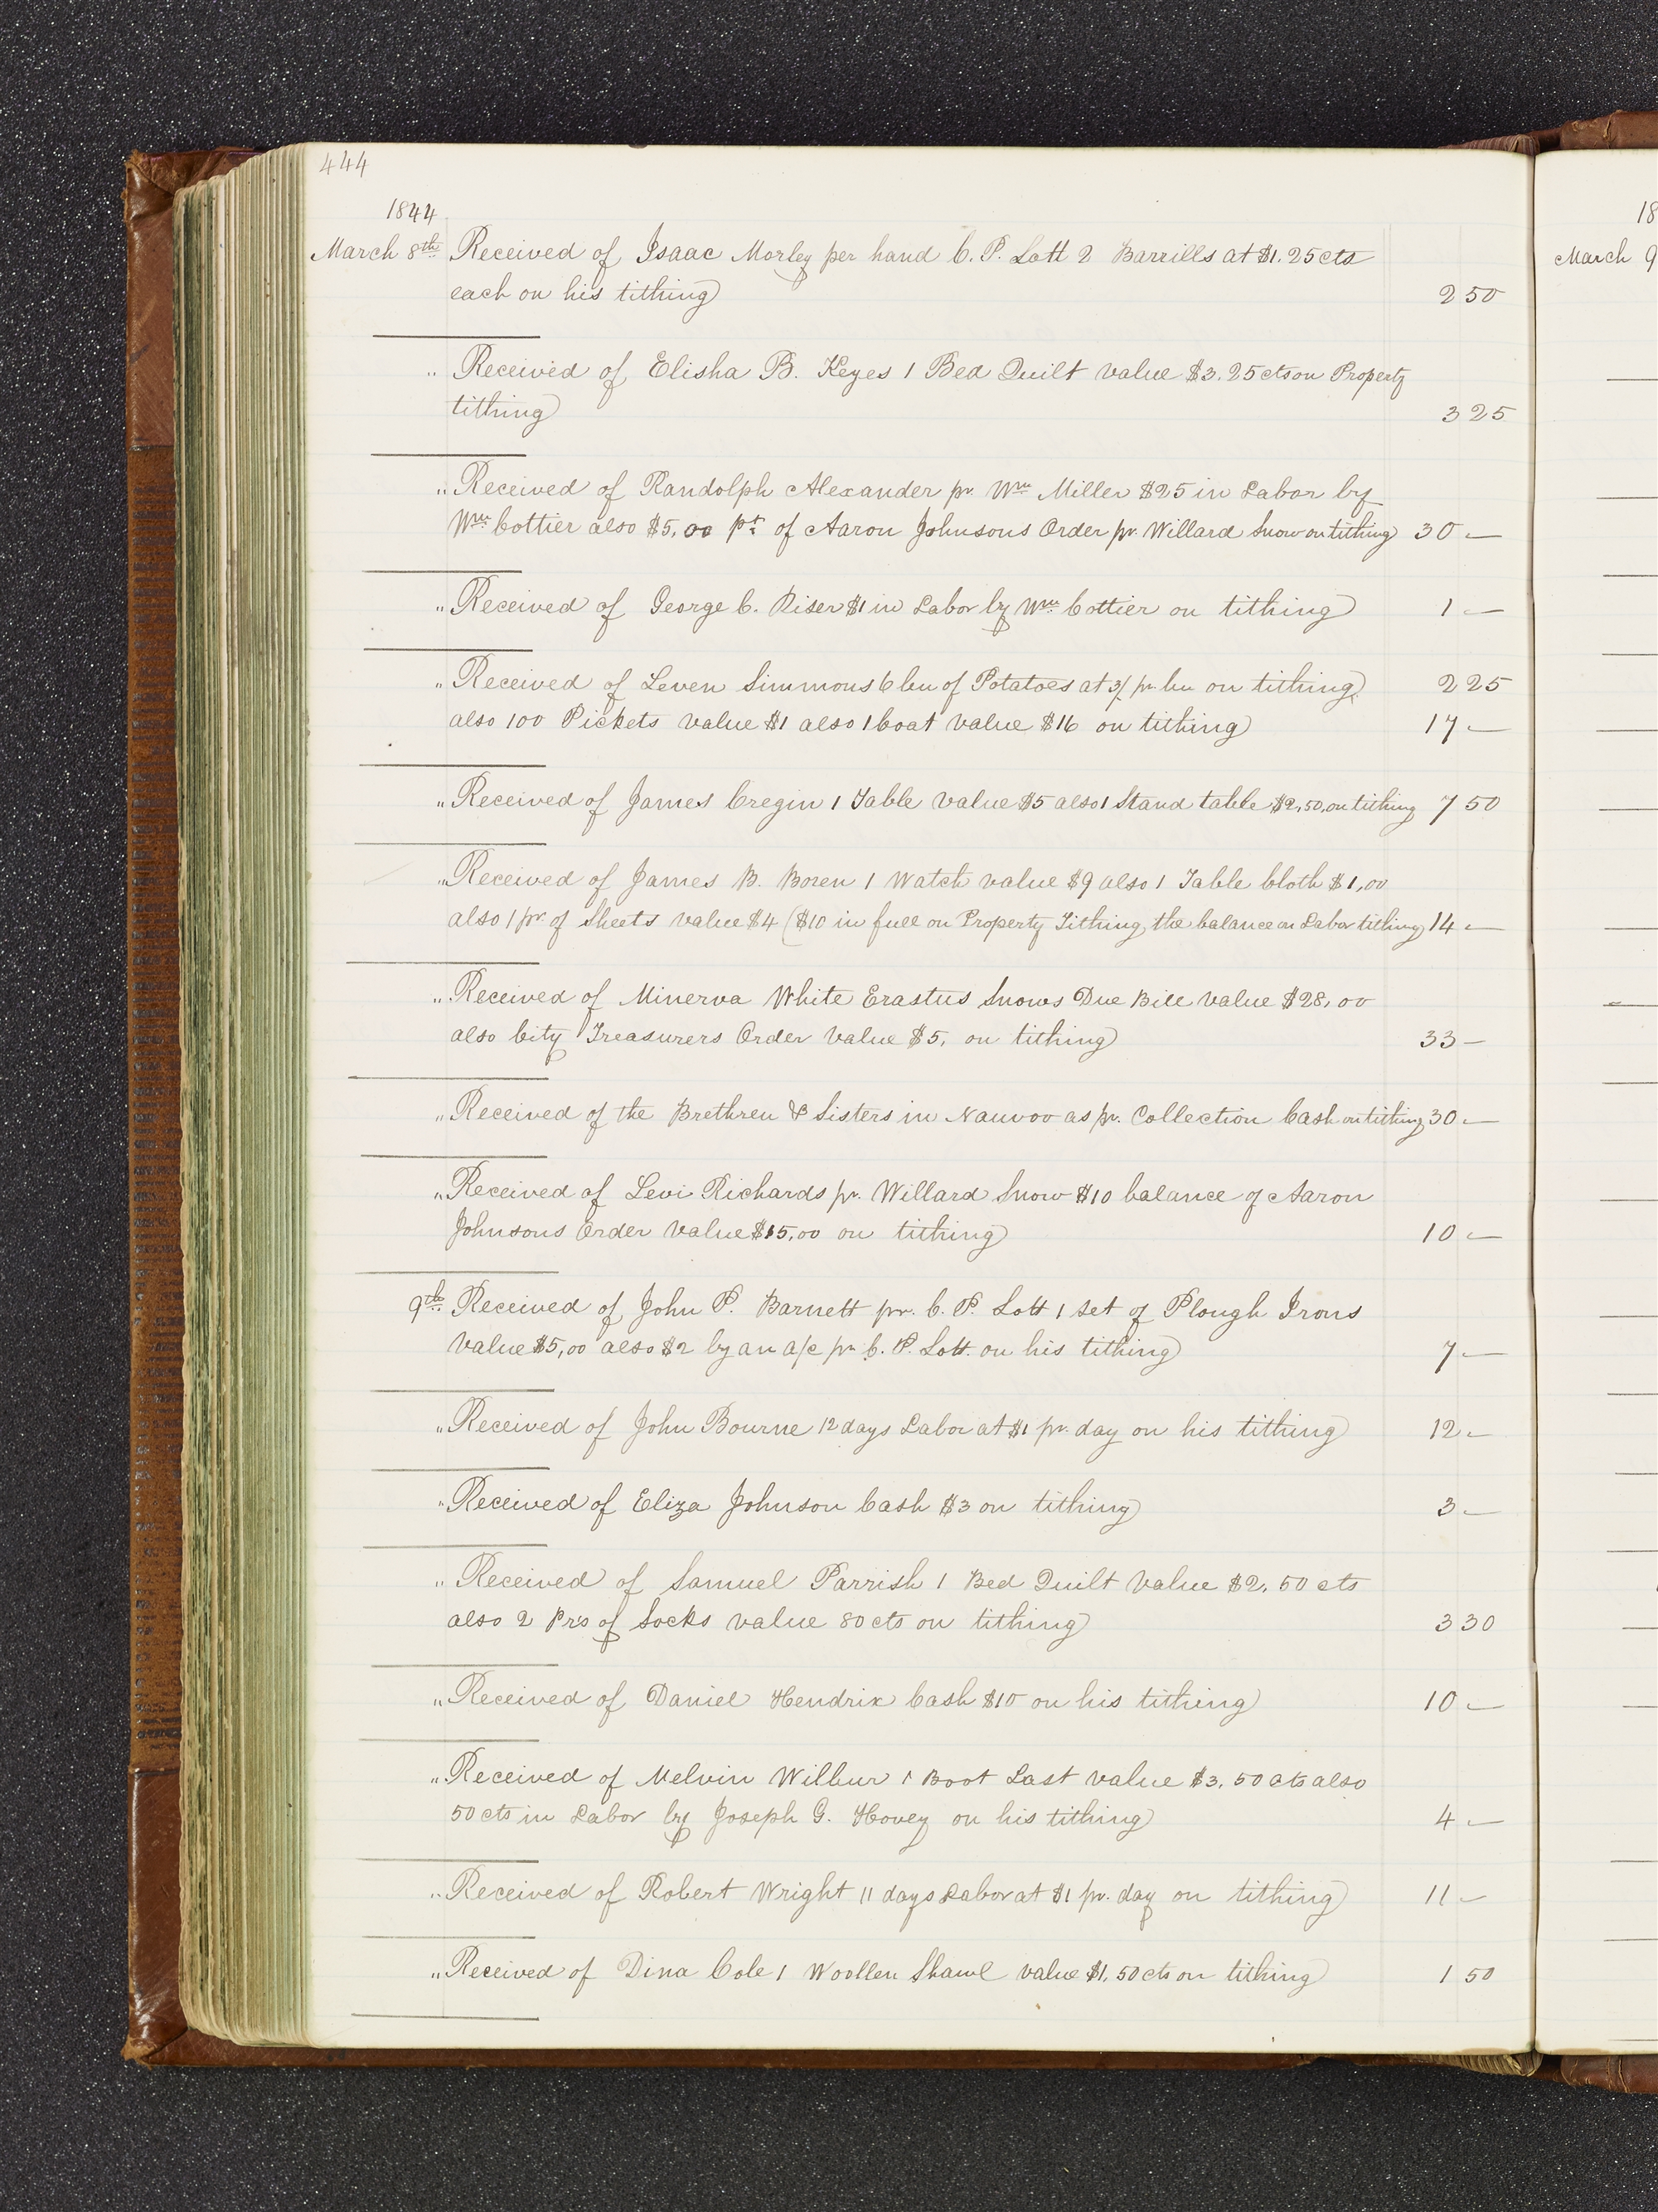 444
1844
March 8th Received of Isaac Morley per hand C. P. Lott 2 Barrills at $1.25 cts
each on his tithing 2 50
" Received of Elisha B. Keyes 1 Bed Quilt value $3.25 cts on Property
tithing 3 25
" Received of Randolph Alexander pr. Wm Miller $25 in Labor by
Wm Cottier also $5,00 pt of Aaron Johnsons Order pr. Willard Snow on tithing 30 —
" Received of George C. Riser $1 in Labor by Wm Cottier on tithing 1 —
" Received of Leven Simmons 6 bu of Potatoes at 3/ pr. bu on tithing 2 25
also 100 Pickets value $1 also 1 boat value $16 on tithing 17 —
" Received of James Cregin 1 Table value $5 also 1 Stand table $2,50, on tithing 7 50
" Received of James B. Boren 1 Watch value $9 also 1 Table Cloth $1,00
also 1 pr. of Sheets value $4 ($10 in full on Property Tithing, the balance on Labor tithing 14 —
" Received of Minerva White Erastus Snows Due Bill value $28,00
also City Treasurers Order value $5, on tithing 33 —
" Received of the Brethren & Sisters in Nauvoo as pr. Collection Cash on tithing 30 —
" Received of Levi Richards pr. Willard Snow $10 balance of Aaron
Johnsons Order value $15,00 on tithing 10 —
9th Received of John P. Barnett pr. C. P. Lott 1 set of Plough Irons
value $5,00 also $2 by an a/c pr C. P. Lott. on his tithing 7 —
" Received of John Bourne 12 days Labor at $1 pr. day on his tithing 12 —
" Received of Eliza Johnson Cash $3 on tithing 3 —
" Received of Samuel Parrish 1 Bed Quilt value $2,50 cts
also 2 Prs of Socks value 80 cts on tithing 3 30
" Received of Daniel Hendrix Cash $10 on his tithing 10 —
" Received of Melvin Wilbur 1 Boot Last value $3,50 cts also
50 cts in Labor by Joseph G. Hovey on his tithing 4 —
" Received of Robert Wright 11 days Labor at $1 pr. day on tithing 11 —
" Received of Dina Cole 1 Woollen Shawl value $1,50 cts on tithing 1 50
18
March 9